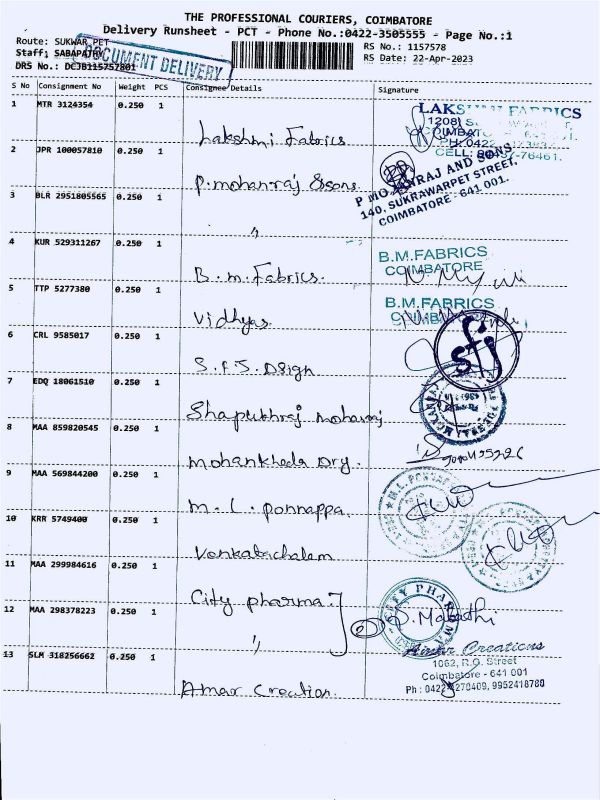 THE PROFESSIONAL COURIERS, COIMBATORE
Delivery Runsheet - PCT - Phone No.:0422-3505555 - Page No.:1
Route: SUKWAR_PET
Staff: SABAPATHY
DRS No.: DCJB115757801
DOCUMENT DELIVERY
RS No.: 1157578
RS Date: 22-Apr-2023
S No Consignment No Weight PCS Consignee Details Signature
1 MTR 3124354 0.250 1
Lakshmi Fabrics
LAKSHMI FABRICS
1208/
COIMBATORE
PH: 0422
CELL:
2 JPR 100057810 0.250 1
P. mohanraj & sons
P MOHANRAJ AND SONS
140, SUKRAWARPET STREET,
COIMBATORE - 641 001.
3 BLR 2951805565 0.250 1
"
4 KUR 529311267 0.250 1
B. m. Fabrics.
B.M.FABRICS
COIMBATORE
5 TTP 5277380 0.250 1
Vidhyas
B.M.FABRICS
COIMBATORE
6 CRL 9585017 0.250 1
S. F J. DSign
sfj
7 EDQ 18061510 0.250 1
Shapukhraj mohanraj
8 MAA 859820545 0.250 1
mohankheda Dry.
9 MAA 569844200 0.250 1
m. L. ponnappa
10 KRR 5749400 0.250 1
Venkatachalam
11 MAA 299984616 0.250 1
City pharma
CITY PHARMA
12 MAA 298378223 0.250 1
"
P. Malathi
13 SLM 318256662 0.250 1
Amar Creation
Amar Creations
1062, R.G. Street
Coimbatore - 641 001
Ph : 0422-4270409, 9952418780